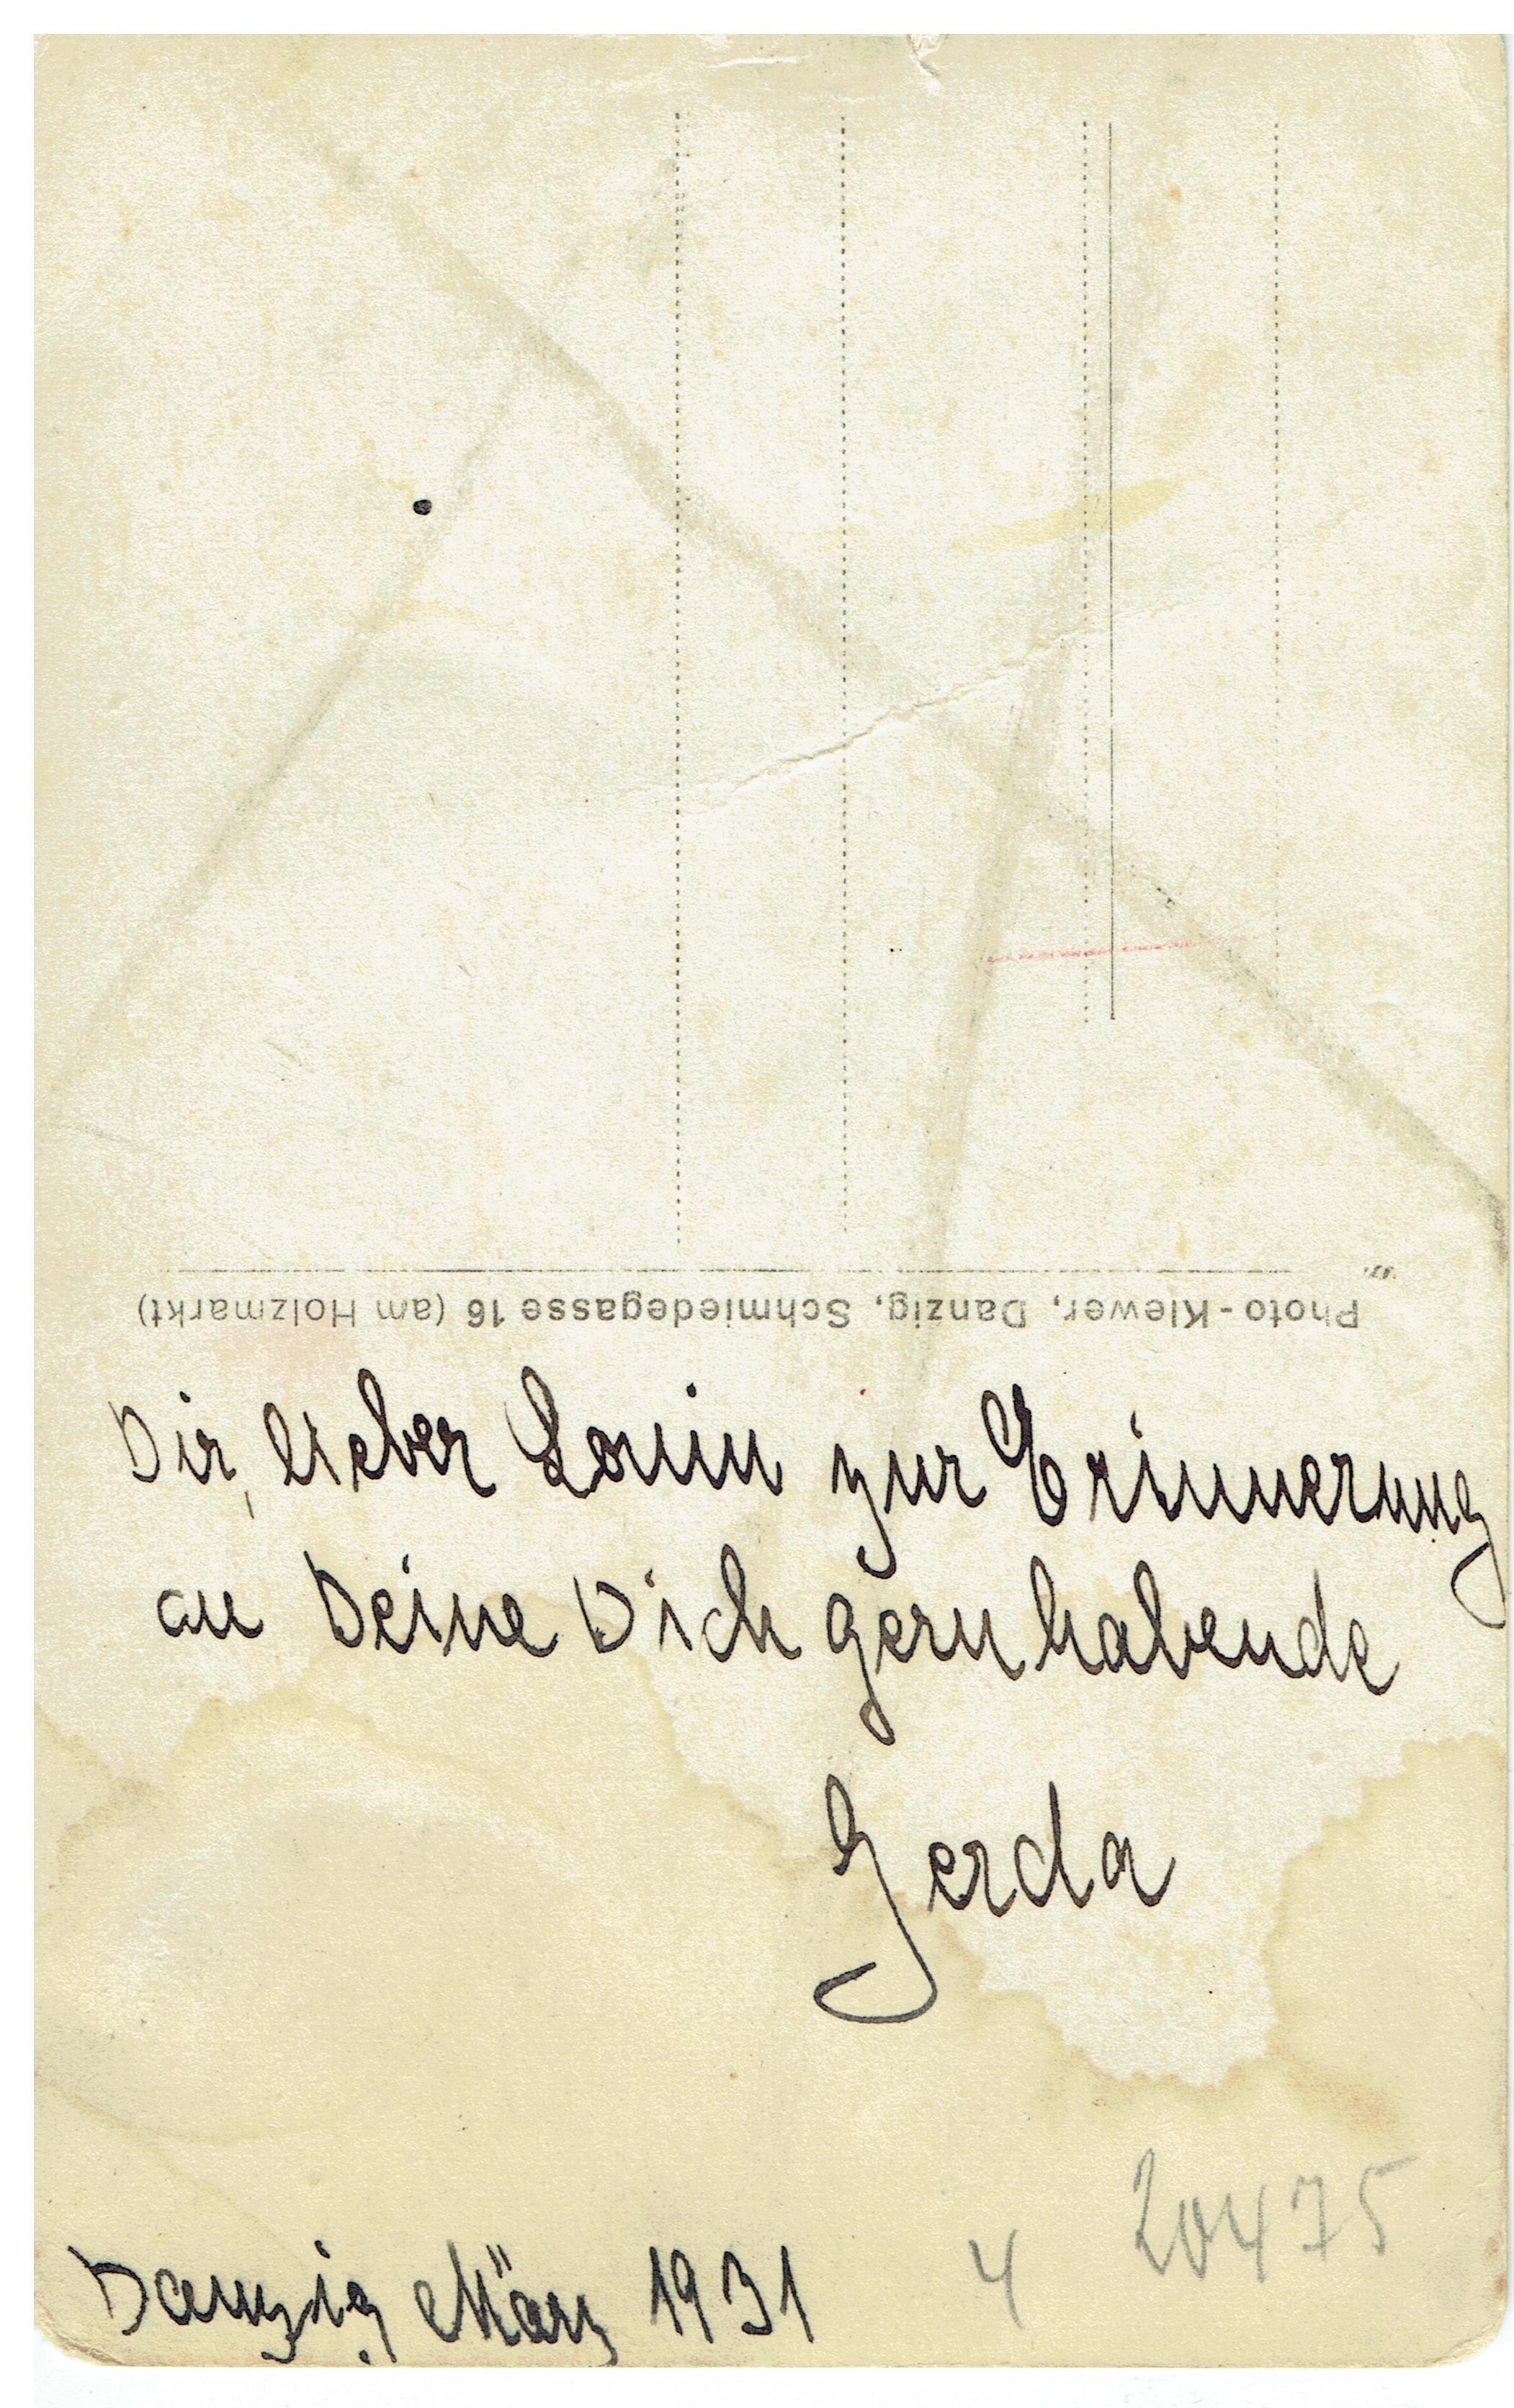 Photo-Klewer, Danzig, Schmiedegasse 16 (am Holzmarkt)
Dir, lieber zur Erinnerung
an Deine Dich gern habende
Gerda
20475
Danzig, März 1931 4